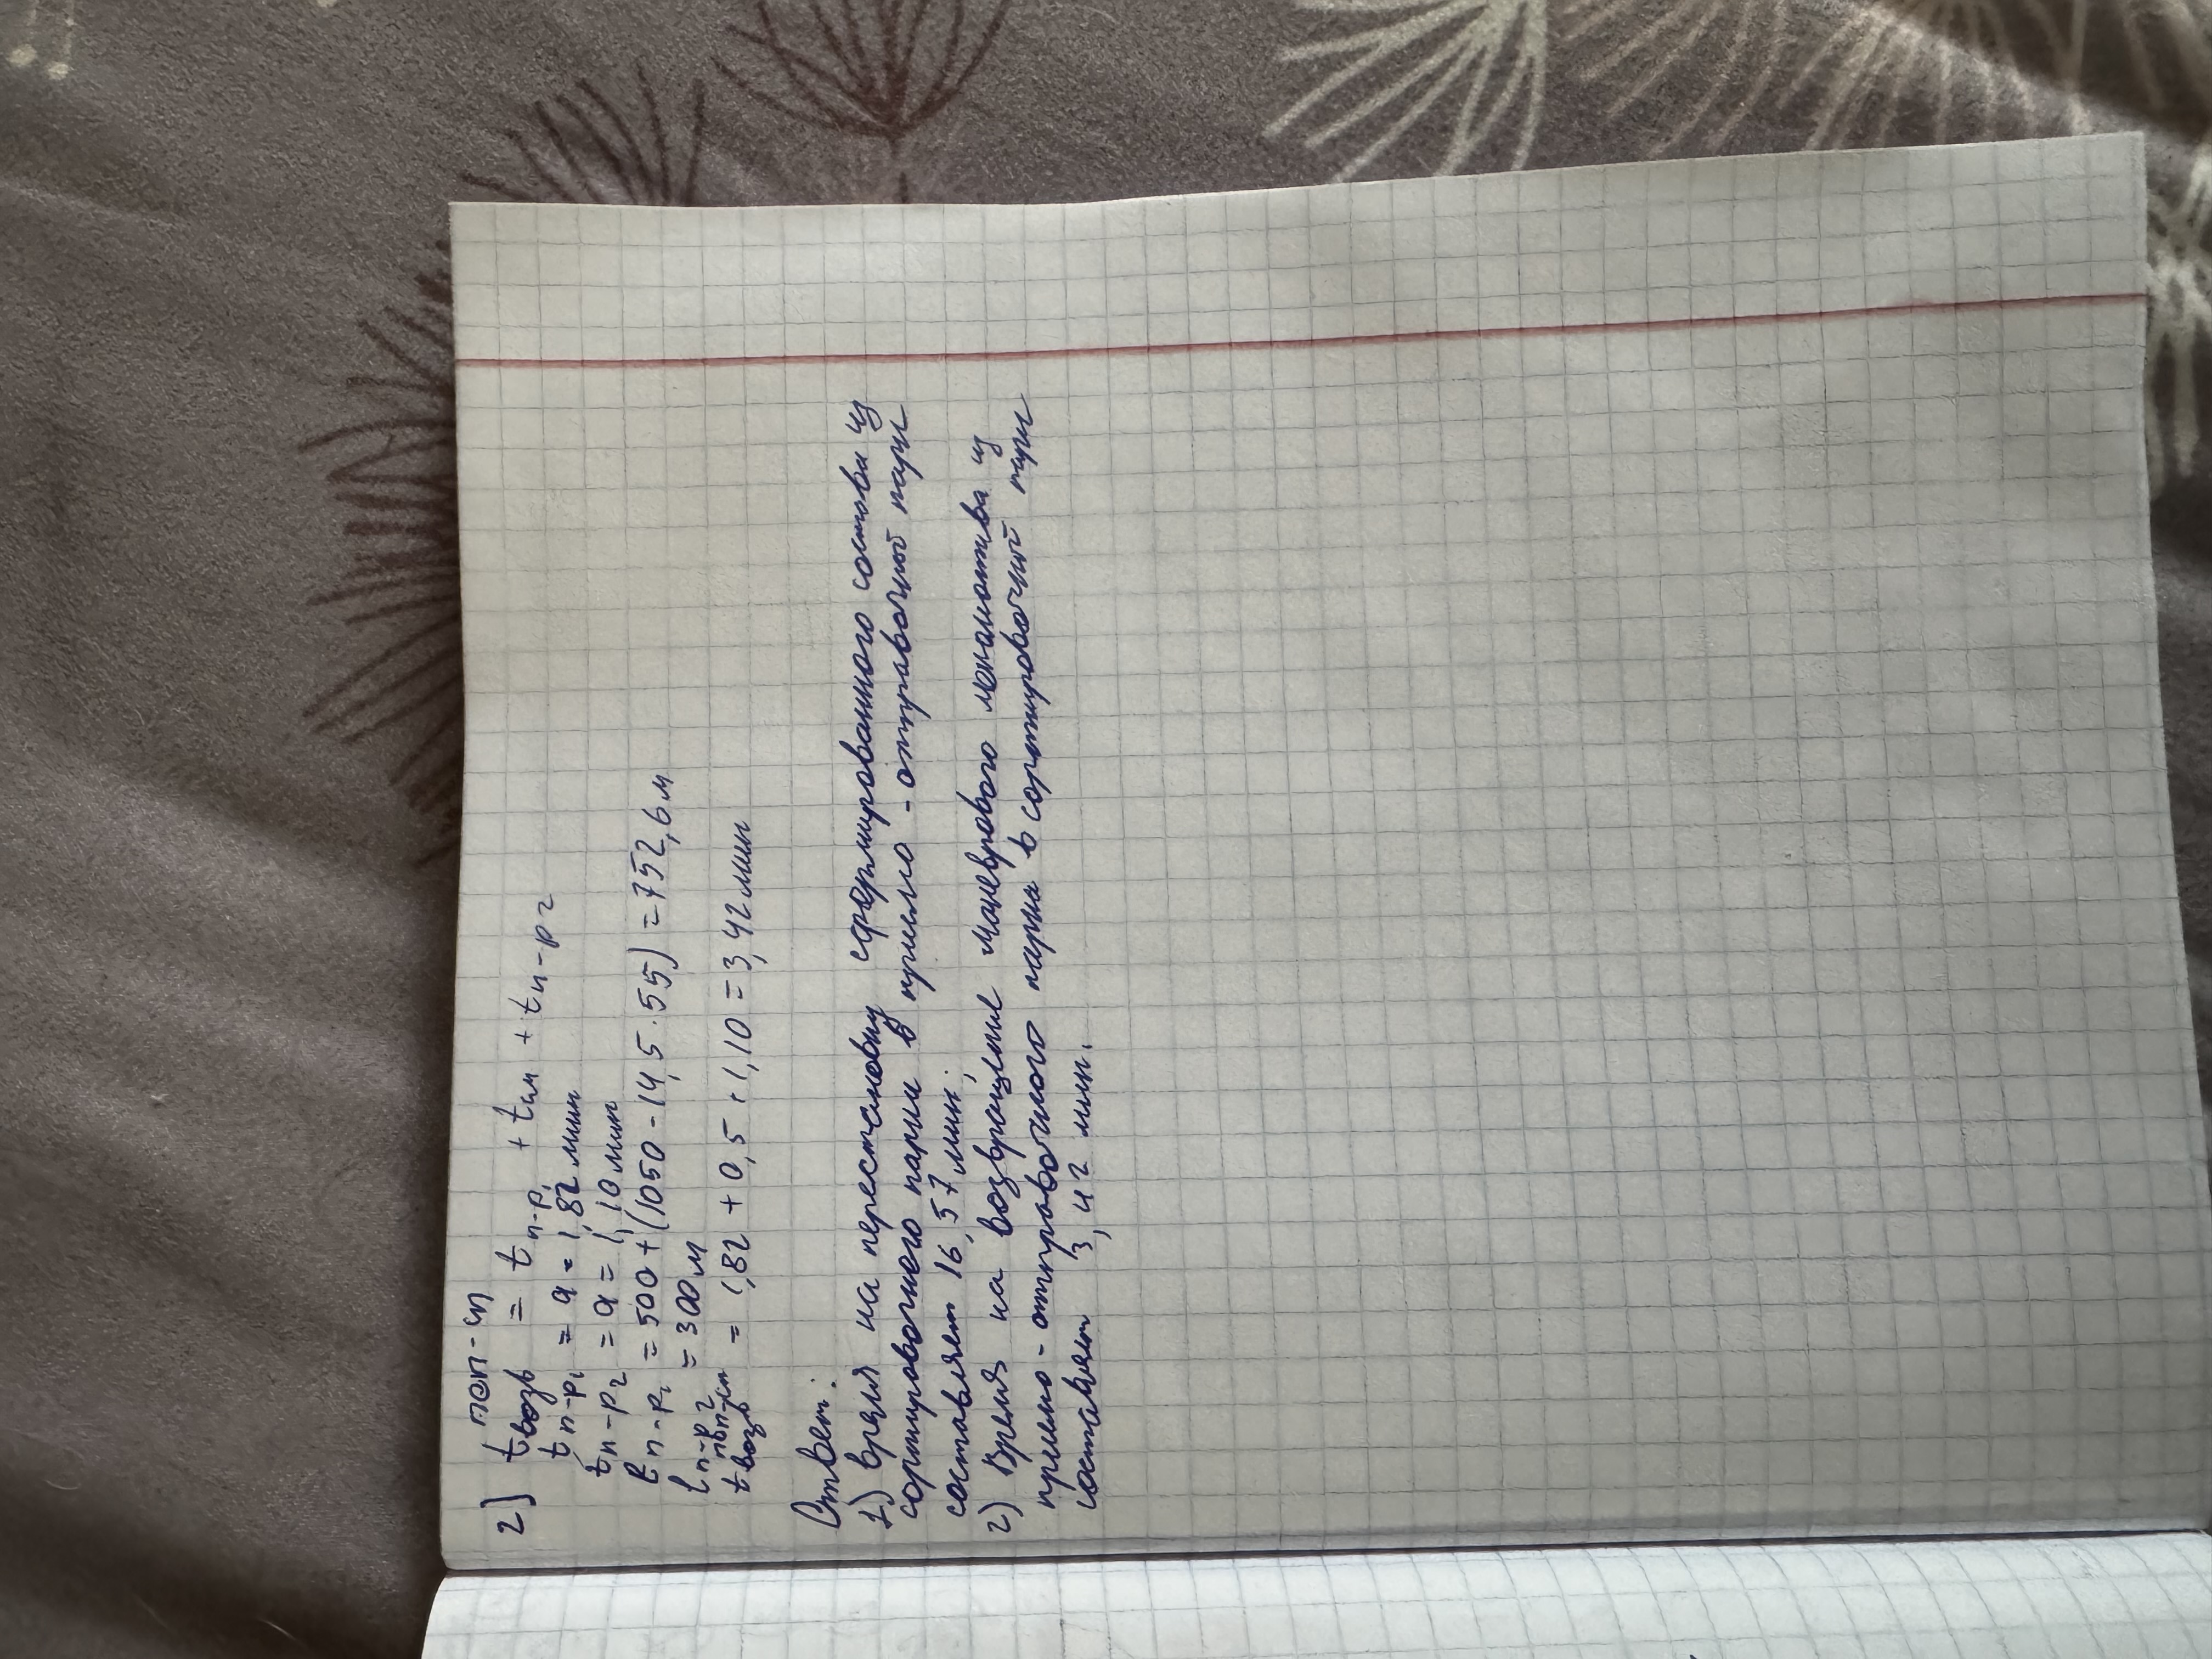 2) tвозв поп-сп = tп-р1 + tим + tп-р2
tп-р1 = a = 1,82 мин
tп-р2 = a = 1,10 мин
lп-р1 = 500 + (1050 - 14,5 · 55) = 752,6 м
lп-р2 = 300 м
tвозв = 1,82 + 0,5 + 1,10 = 3,42 мин
Ответ:
1) время на перестановку сформированного состава из
сортировочного парка в приемо-отправочный парк
составляет 16,57 мин;
2) Время на возвращение маневрового локомотива из
приемо-отправочного парка в сортировочный парк
составляет 3,42 мин.